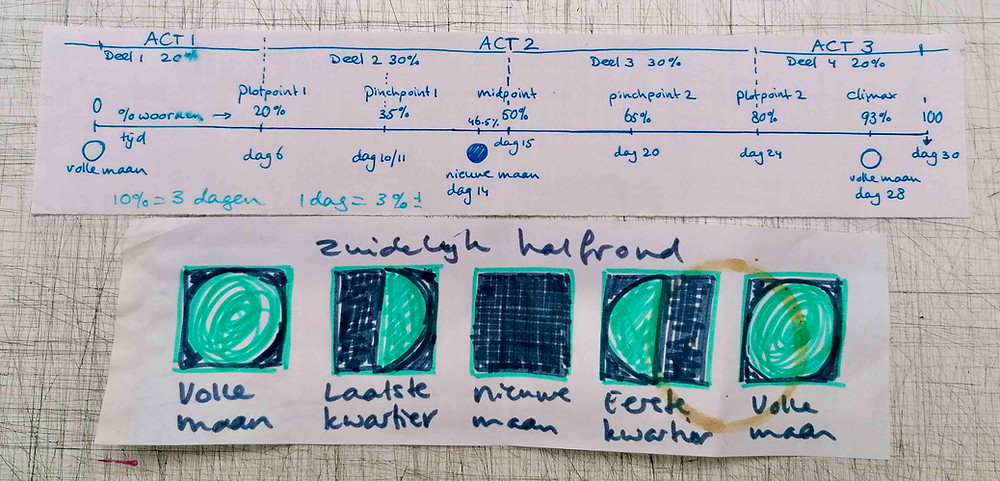 ACT 1 ACT 2 ACT 3
Deel 1 20% Deel 2 30% Deel 3 30% Deel 4 20%
plotpoint 1 pinchpoint 1 midpoint pinchpoint 2 plotpoint 2 climax
0 % woorden → 20% 35% 46.5% 50% 65% 80% 93% 100
tijd dag 6 dag 10/11 dag 15 dag 20 dag 24 dag 30
volle maan nieuwe maan volle maan
dag 14 dag 28
10% = 3 dagen 1 dag = 3% ±
zuidelijk halfrond
Volle Laatste nieuwe Eerste Volle
maan kwartier maan kwartier maan